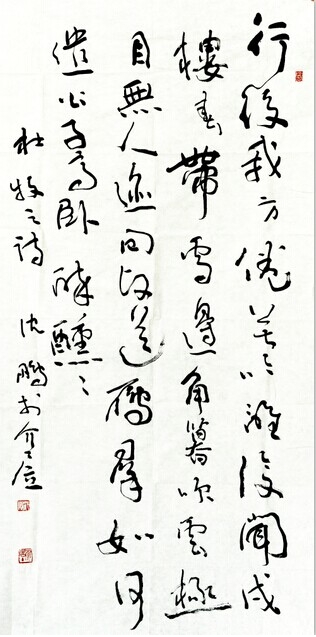 行役我方倦苦吟誰復聞戍
樓春帶雪邊角暮吹雲極
目無人迹回頭送鴈羣如何
遣公子高臥醉醺〻
杜牧之詩 沈鵬於介居